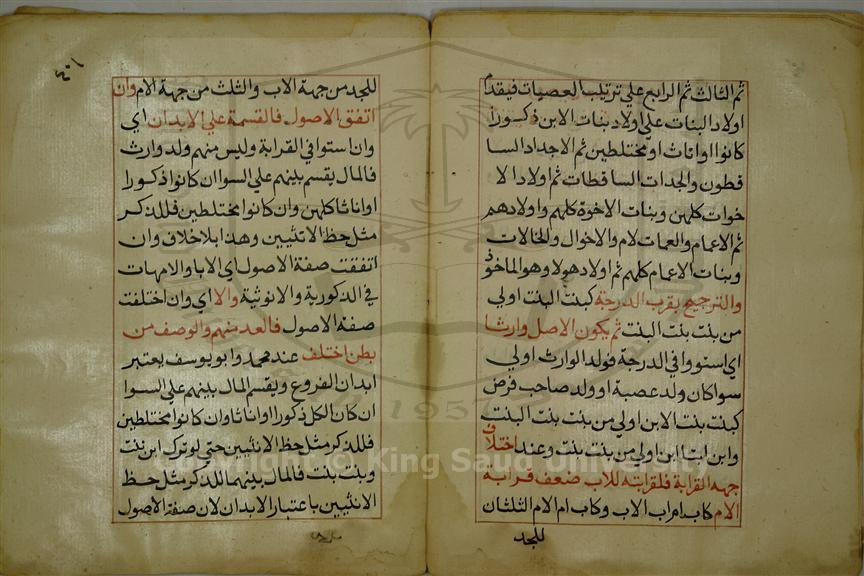 ثم الثالث ثم الرابع علي ترتيب العصبات فيقدم
اولاد البنات علي اولاد بنات الابن ذكورا
كانوا او اناثا او مختلطين ثم الاجداد السا
قطون والجدات الساقطات ثم اولاد الا
خوات كلهن وبنات الاخوة كلهم واولادهم
ثم الاعمام والعمات لام والاخوال والخالات
وبنات الاعمام كلهم ثم اولاد هولا وهو الماخوذ
والترجيح بقرب الدرجة كبنت البنت اولي
من بنت بنت البنت ثم بكون الاصل وارثا
اي استووا في الدرجة فولد الوارث اولي
سوا كان ولد عصبة او ولد صاحب فرض
كبنت بنت الابن اولي من بنت بنت البنت
وابن ابن اولي من بنت بنت وعند اختلاف
جهه القرابة فلقرابته للاب ضعف قرابة
الام كاب اب الاب وكاب ام الام الثلثان
للجد
للجد من جهة الاب والثلث من جهة الام وان
اتفق الاصول فالقسمة علي الابدان اي
وان استوا في القرابة وليس منهم ولد وارث
فالمال يقسم بينهم علي السوا ان كانوا ذكورا
او اناثا كلهن وان كانوا مختلطين فللذكر
مثل حظ الانثيين وهذا بلا خلاف وان
اتفقت صفة الاصول اي الابا والامهات
في الذكورية والانوثية والا اي وان اختلفت
صفة الاصول فالعدد منهم والوصف من
بطن اختلف عند محمد وابو يوسف يعتبر
ابدان الفروع ويقسم المال بينهم علي السوا
ان كان الكل ذكورا او اناثا وان كانوا مختلطين
فللذكر مثل حظ الانثيين حتي لو ترك ابن بنت
وبنت بنت فالمال بينهما للذكر مثل حظ
الانثيين باعتبار الابدان لان صفة الاصول
1957
Copyright © King Saud University